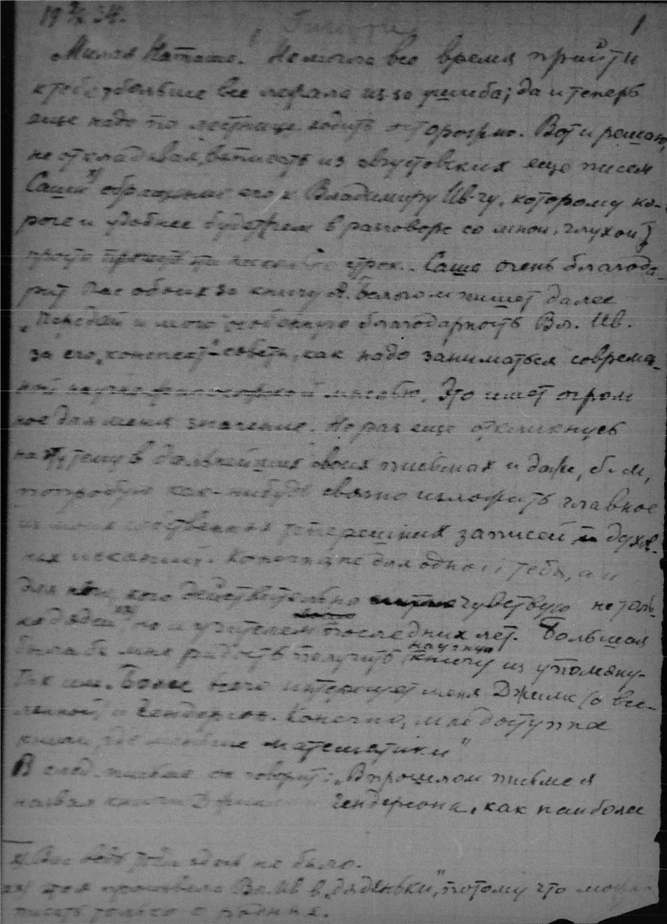 19 2/X 34.
1
Милая Наташа! Не могла все время прийти
к тебе, больше все лежала из-за ушиба; да и теперь
еще надо по лестнице ходить осторожно. Вот и решаю,
не откладывая, выписать из августовских еще писем
Саши x) обращение его к Владимиру Ив-чу, которому ко-
роче и удобнее будет, чем в разговоре со мной, глухой,
просто прочесть строк. Саша очень благода-
рит Вас обоих за книгу А. Белого и пишет далее
"Передай и мою особенную благодарность Вл. Ив.
за его "конспект"-советы, как надо заниматься современ-
ной научно-философской мыслью. Это имеет огром
ное для меня значение. Не раз еще откликнусь
на эту тему в дальнейших своих письмах и даже, б. м.,
попробую как-нибудь связно изложить главное
из моих собственных теперешних записей и духов-
ных исканий. Конечно, не для одной тебя, а и
для того, кого действительно чувствую не толь-
ко дядей xx) но и учителем последних лет. Большая
была бы мне радость получить научную книгу из упомяну-
тых им. Более всего интересует меня Джинс (о все-
ленной) и Гендерсон. Конечно, мне доступнее
книги, где меньше математики"
В след. письме он говорит: "В прошлом письме я
назвал книги Джинса и Гендерсона, как наиболее
x) Вас ведь тогда здесь не было.
xx) произвела Вл. Ив в "дяденьки", потому что может
писать только к родным.